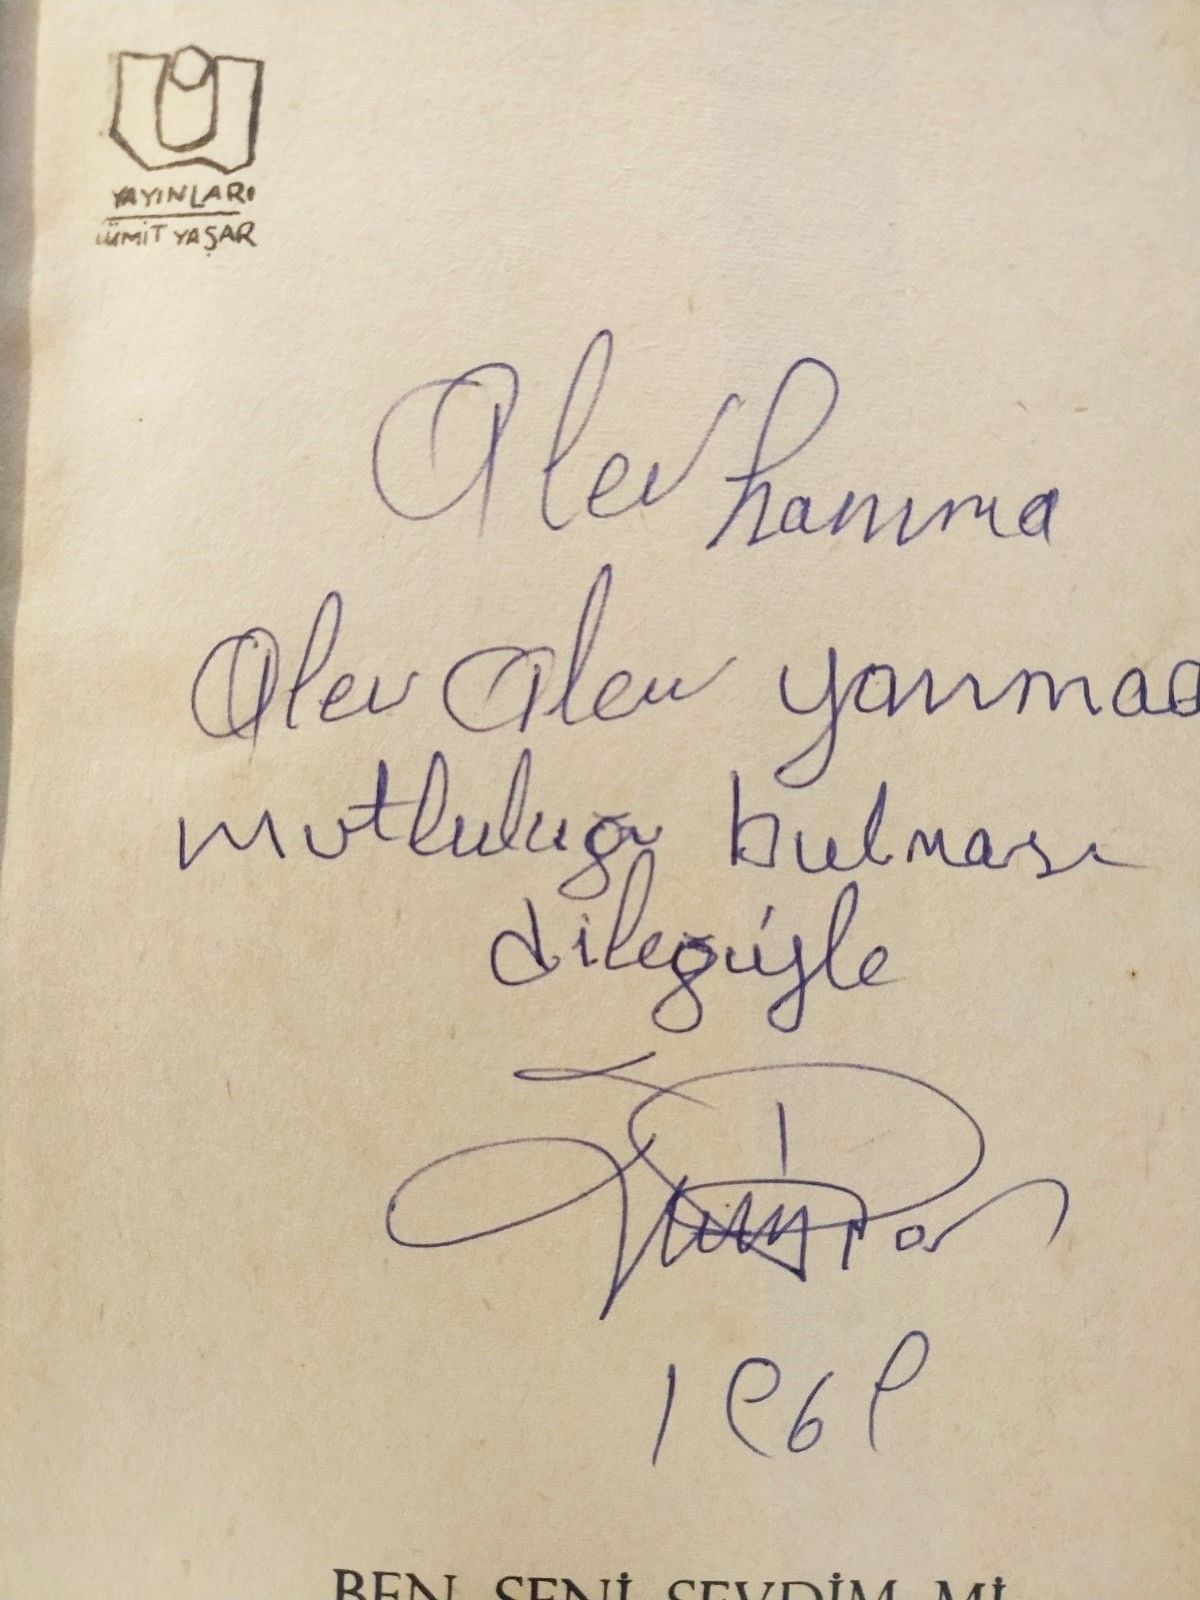 YAYINLARI
ÜMİT YAŞAR
Alev hanıma
Alev Alev yanması
mutluluğu bulması
dileğiyle
1969
BEN SENİ SEVDİM Mİ